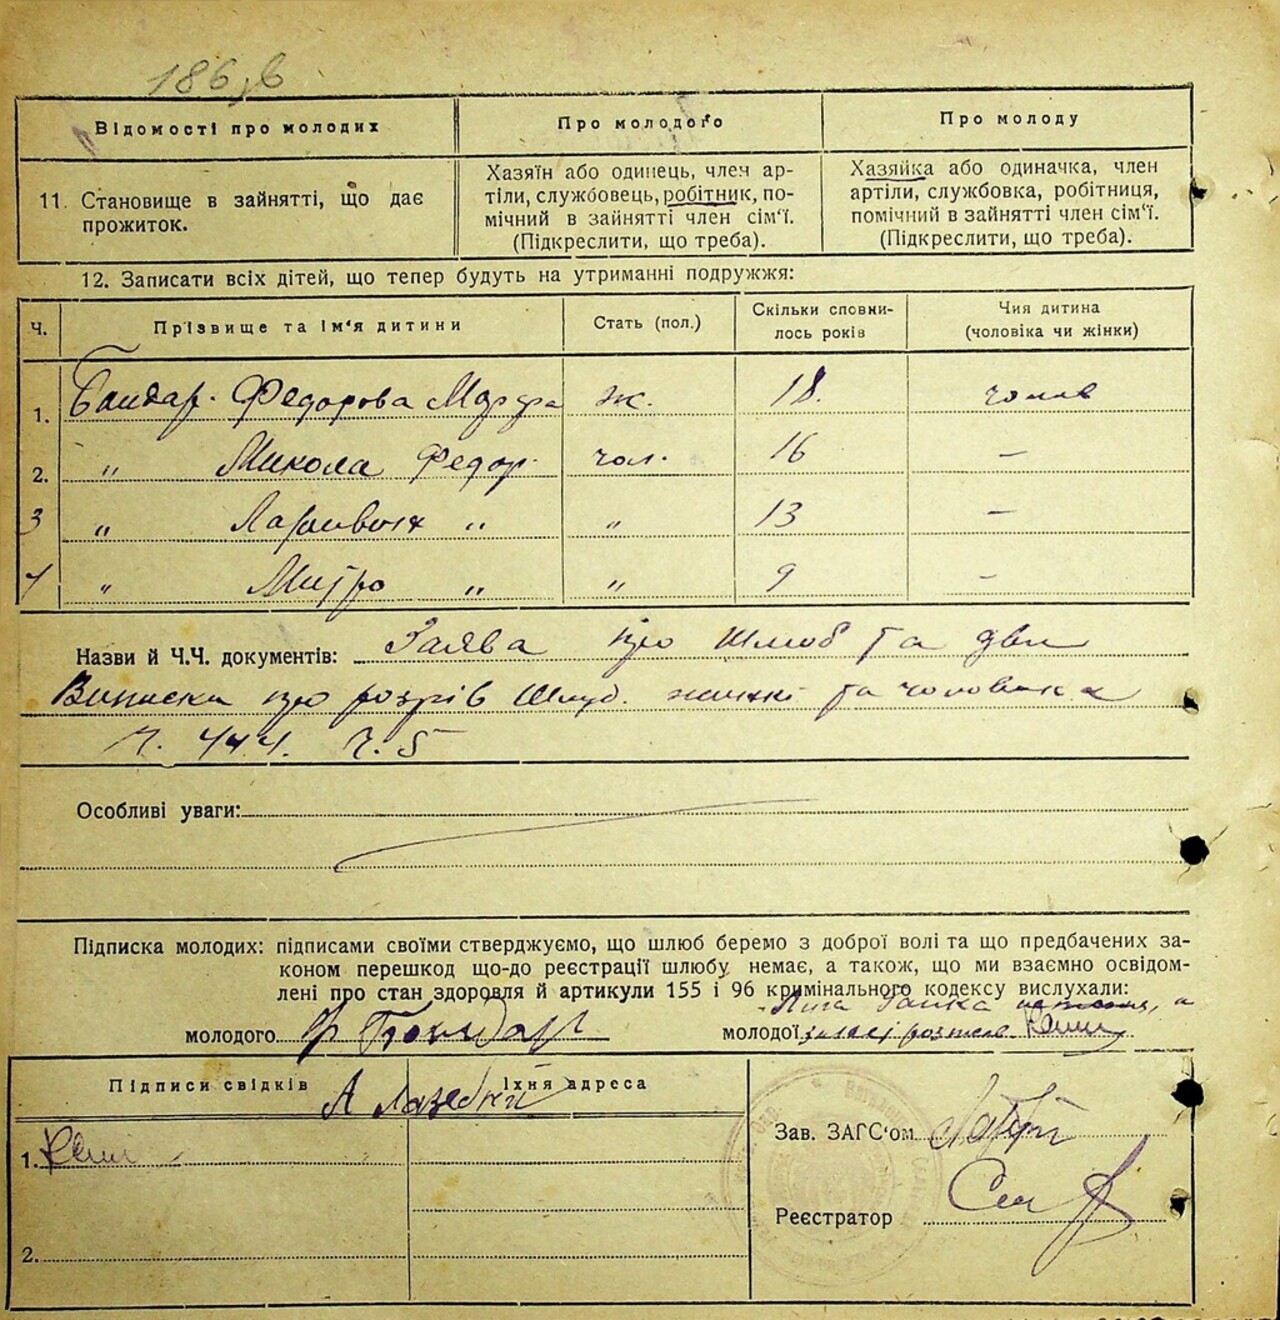 186, в
Відомості про молодих
Про молодого
Про молоду
11. Становище в зайнятті, що дає прожиток.
Хазяїн або одинець, член ар-
тіли, службовець, робітник, по-
мічний в зайнятті член сім'ї.
(Підкреслити, що треба).
Хазяйка або одиначка, член
артіли, службовка, робітниця,
помічний в зайнятті член сім'ї.
(Підкреслити, що треба).
12. Записати всіх дітей, що тепер будуть на утриманні подружжя:
Ч. Прізвище та ім'я дитини Стать (пол.) Скільки сповни-лось років Чия дитина (чоловіка чи жінки)
1. Бондар. Федорова Марфа ж. 18. чолов
2. " Микола Федор. чол. 16 —
3 " " " 13 —
4 " Митро " " 9 —
Назви й Ч.Ч. документів: Заява про Шлюб та дві
Виписки про розрів Шлюб. жінкі та чоловіка
Ч. 444. Ч. 5
Особливі уваги:
Підписка молодих: підписами своїми стверджуємо, що шлюб беремо з доброї волі та що предбачених за-
коном перешкод що-до реєстрації шлюбу немає, а також, що ми взаємно освідом-
лені про стан здоровля й артикули 155 і 96 кримінального кодексу вислухали:
молодого Ф Бондар
молодої
Підписи свідків
Їхня адреса
А Лазебний
1.
2.
Зав. ЗАГС'ом
Реєстратор